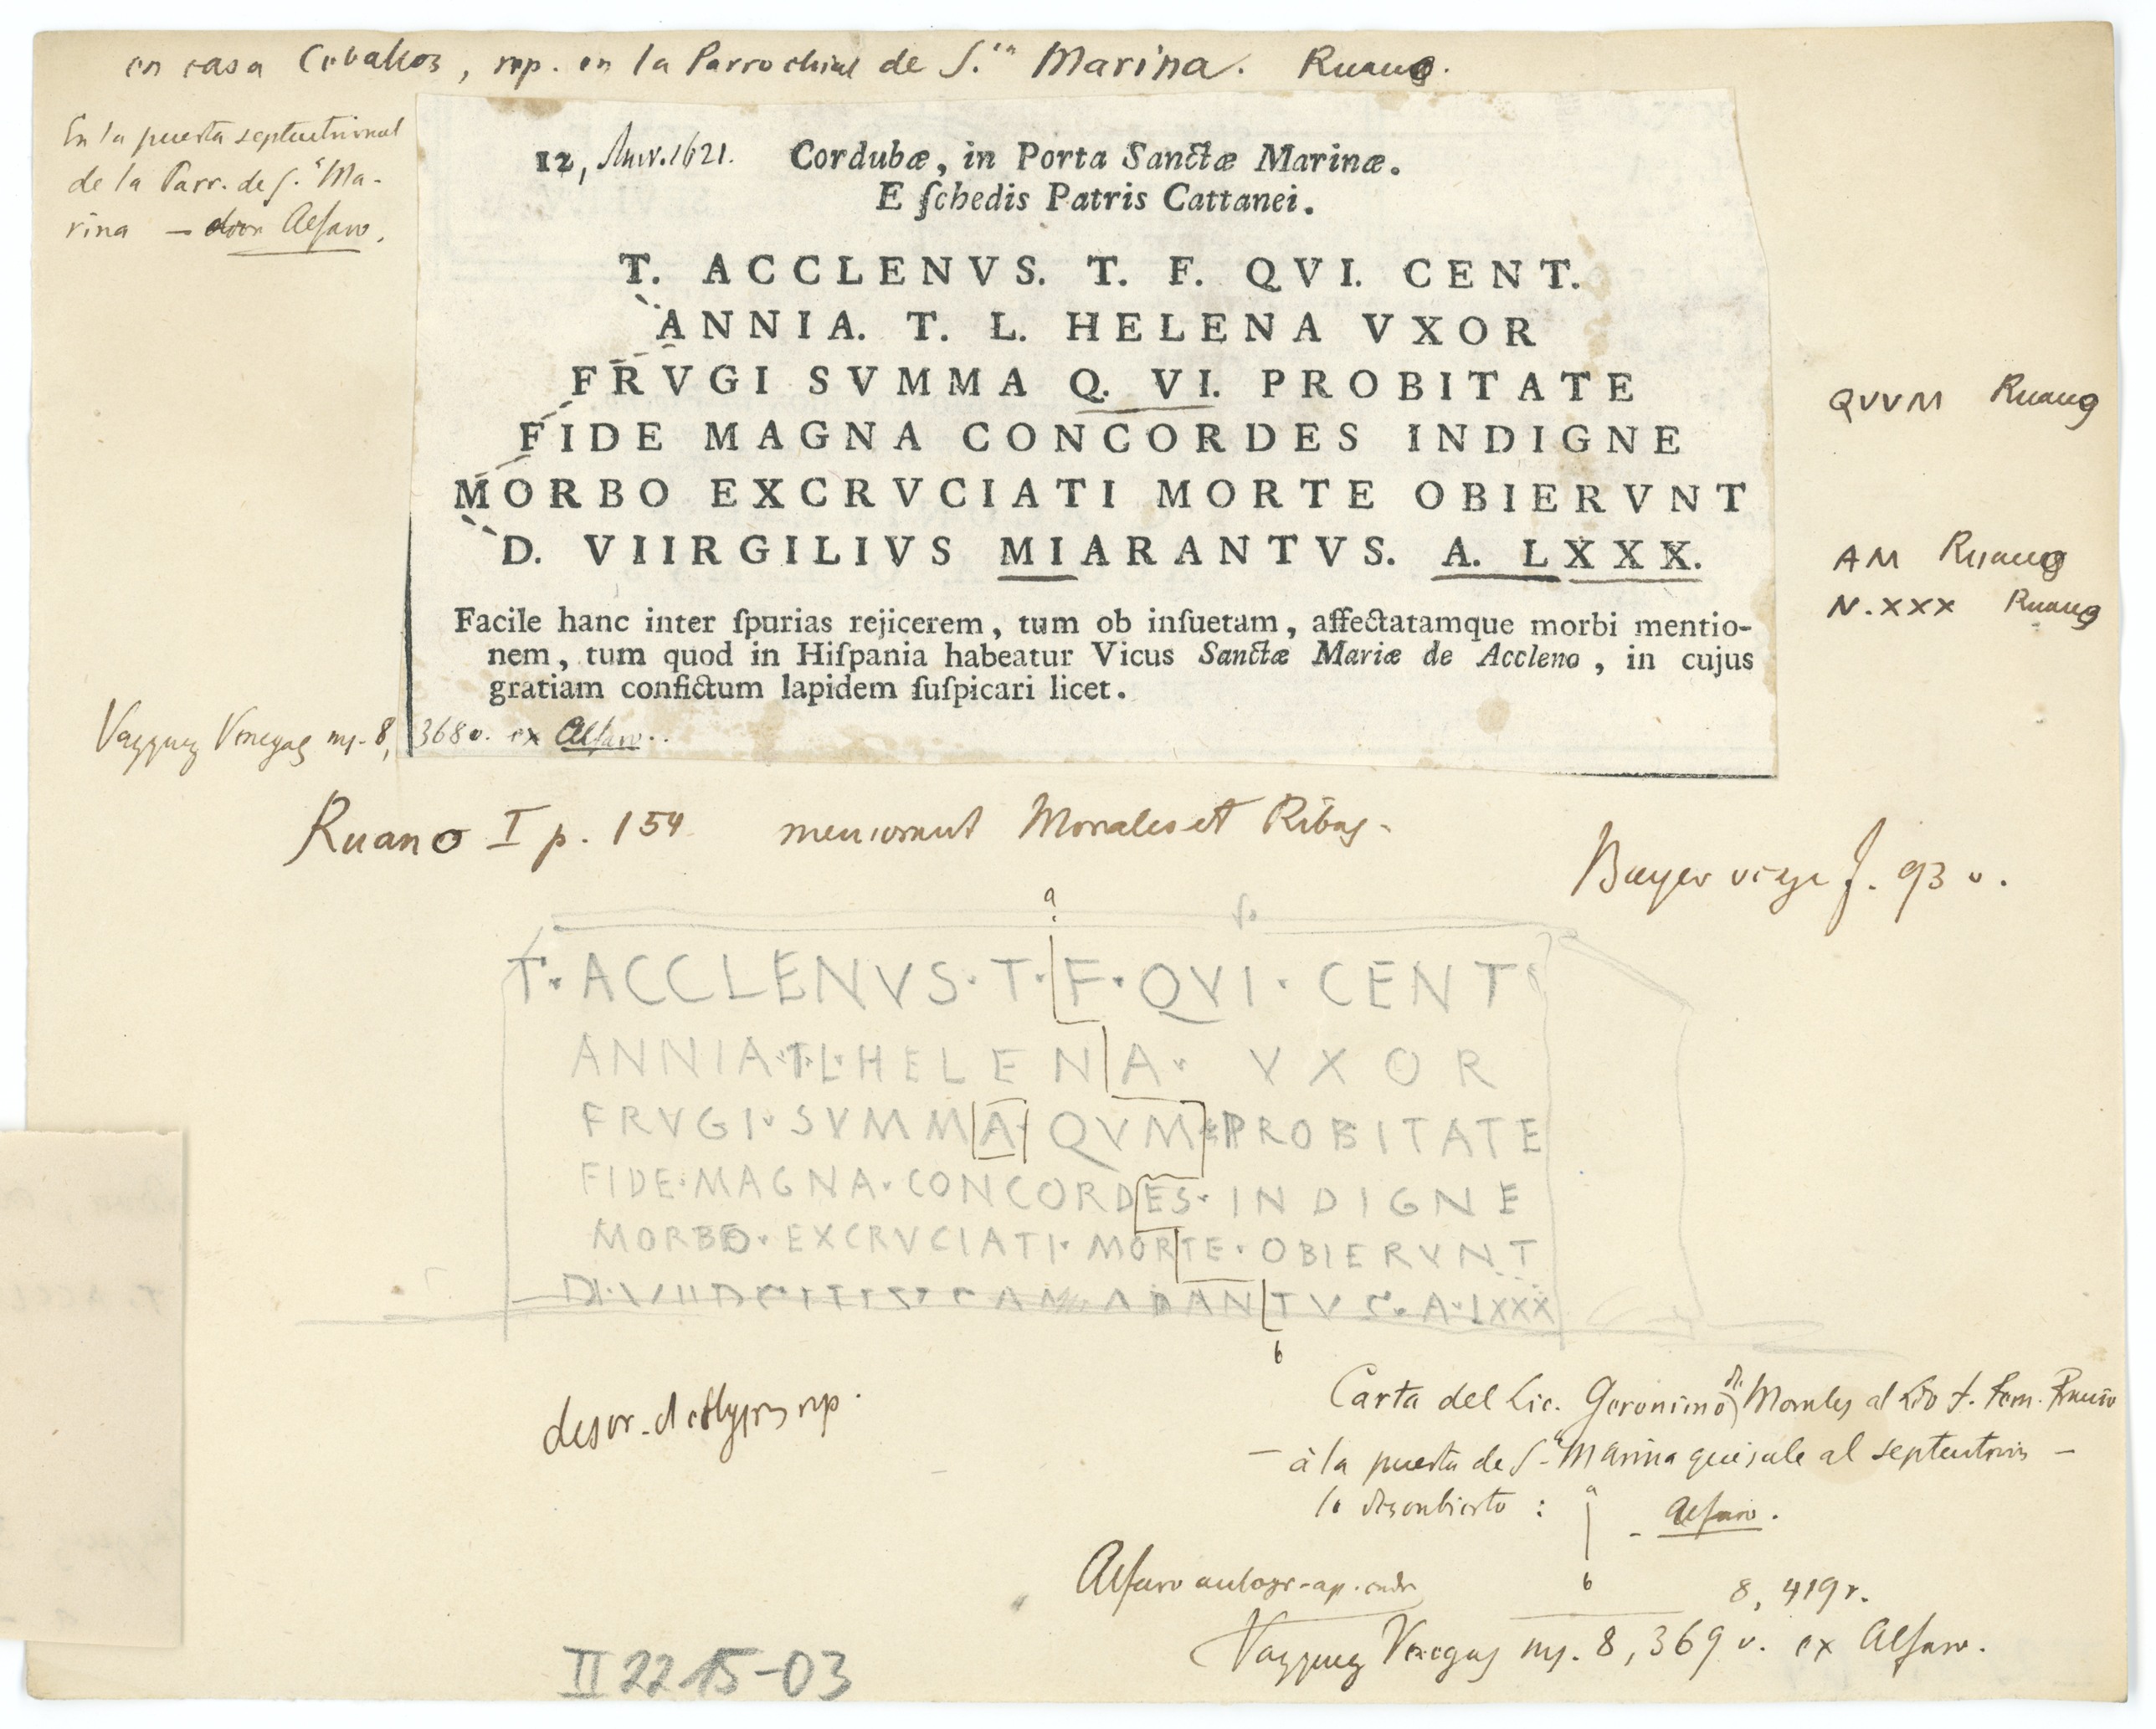 en casa Ceballos, rep. en la Parrochial de S.ta Marina. Ruano.
En la puerta septentrional
de la Parr. de S.a Ma-
rina — Alfaro.
12, Mur. 1621. Cordubæ, in Porta Sanctæ Marinæ.
E ſchedis Patris Cattanei.
T. ACCLENVS. T. F. QVI. CENT.
ANNIA. T. L. HELENA VXOR
FRVGI SVMMA Q. VI. PROBITATE
QVVM Ruano
FIDE MAGNA CONCORDES INDIGNE
MORBO EXCRVCIATI MORTE OBIERVNT
D. VIIRGILIVS MIARANTVS. A. LXXX.
AM Ruano
N.XXX Ruano
Facile hanc inter ſpurias rejicerem, tum ob inſuetam, affectatamque morbi mentio-
nem, tum quod in Hiſpania habeatur Vicus Sanctæ Mariæ de Accleno, in cujus
gratiam confictum lapidem ſuſpicari licet.
Vazquez Venegas ms. 8, 368v. ex Alfaro.
Ruano I p. 154 Morales et Ribas.
Bayer viaje f. 93 v.
a
T·ACCLENVS·T·F·QVI·CENT
ANNIA·T·L·HELENA· VXOR
FRVGI·SVMMA QVM PROBITATE
FIDE·MAGNA·CONCORDES·INDIGNE
MORBO·EXCRVCIATI·MORTE·OBIERVNT
ANTVS·A·LXXX
b
descr. ectypum
Carta del Lic. Geronimo de Morales al
— à la puerta de S.a Marina que sale al septentrion —
lo descubierto : a
Alfaro.
Alfaro autogr. ap. b 8, 419r.
Vazquez Venegas ms. 8, 369 v. ex Alfaro.
II 2215-03